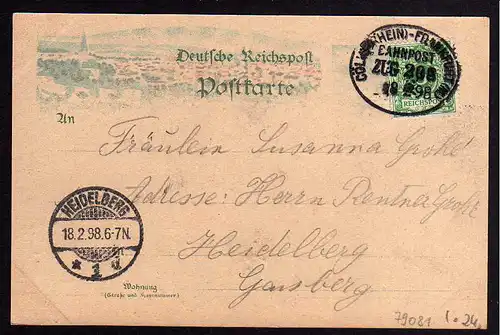 Deutsche Reichspost
Postkarte
CÖLN (RHEIN)-FRANKFURT (M)
BAHNPOST
ZUG 206
18 2 98
REICHSPOST
An
Fräulein Susanna Grohé
Adresse: Herrn Rentner Grohé
HEIDELBERG
18.2.98.6-7N.
* 1
Heidelberg
Gaisberg
Wohnung
(Straße und Hausnummer)
79081 1.24